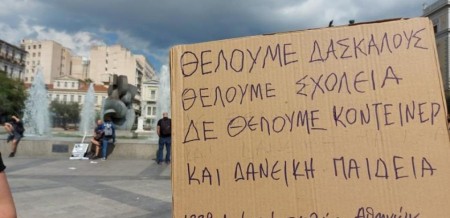 ΘΕΛΟΥΜΕ ΔΑΣΚΑΛΟΥΣ
ΘΕΛΟΥΜΕ ΣΧΟΛΕΙΑ
ΔΕ ΘΕΛΟΥΜΕ ΚΟΝΤΕΙΝΕΡ
ΚΑΙ ΔΑΝΕΙΚΗ ΠΑΙΔΕΙΑ